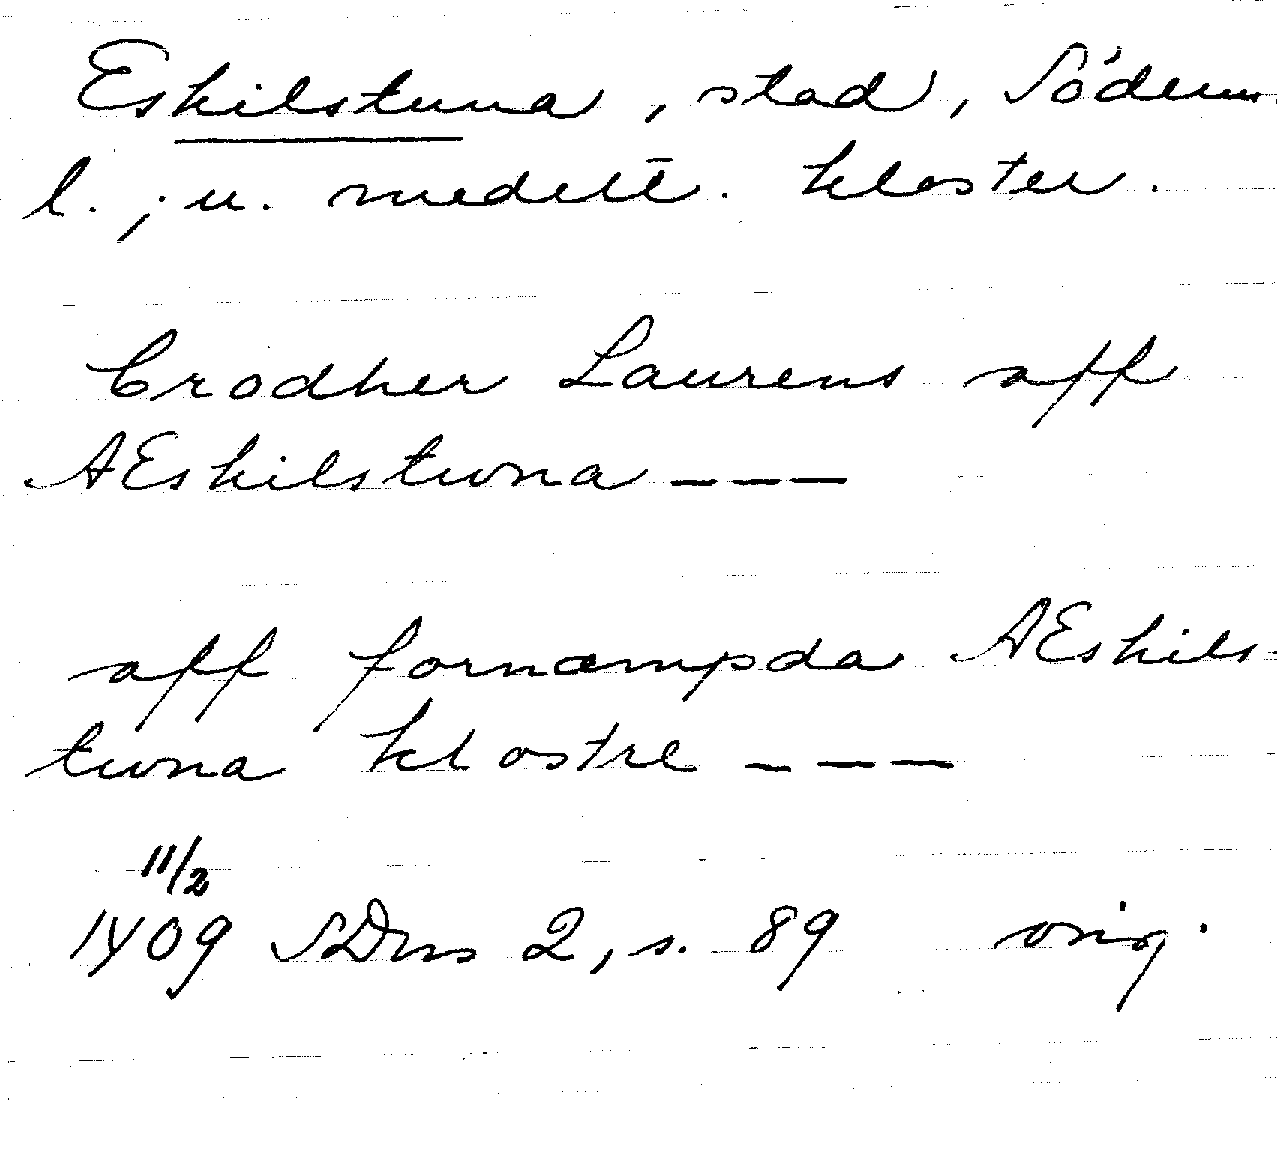 Eskilstuna, stad, Söderm.
l.; u. medelt. kloster.
brodher Laurens aff
AEskilstwna ---
aff fornæmpda AEskils-
twna klostre ---
11/2
1409 SDns 2, s. 89 orig.